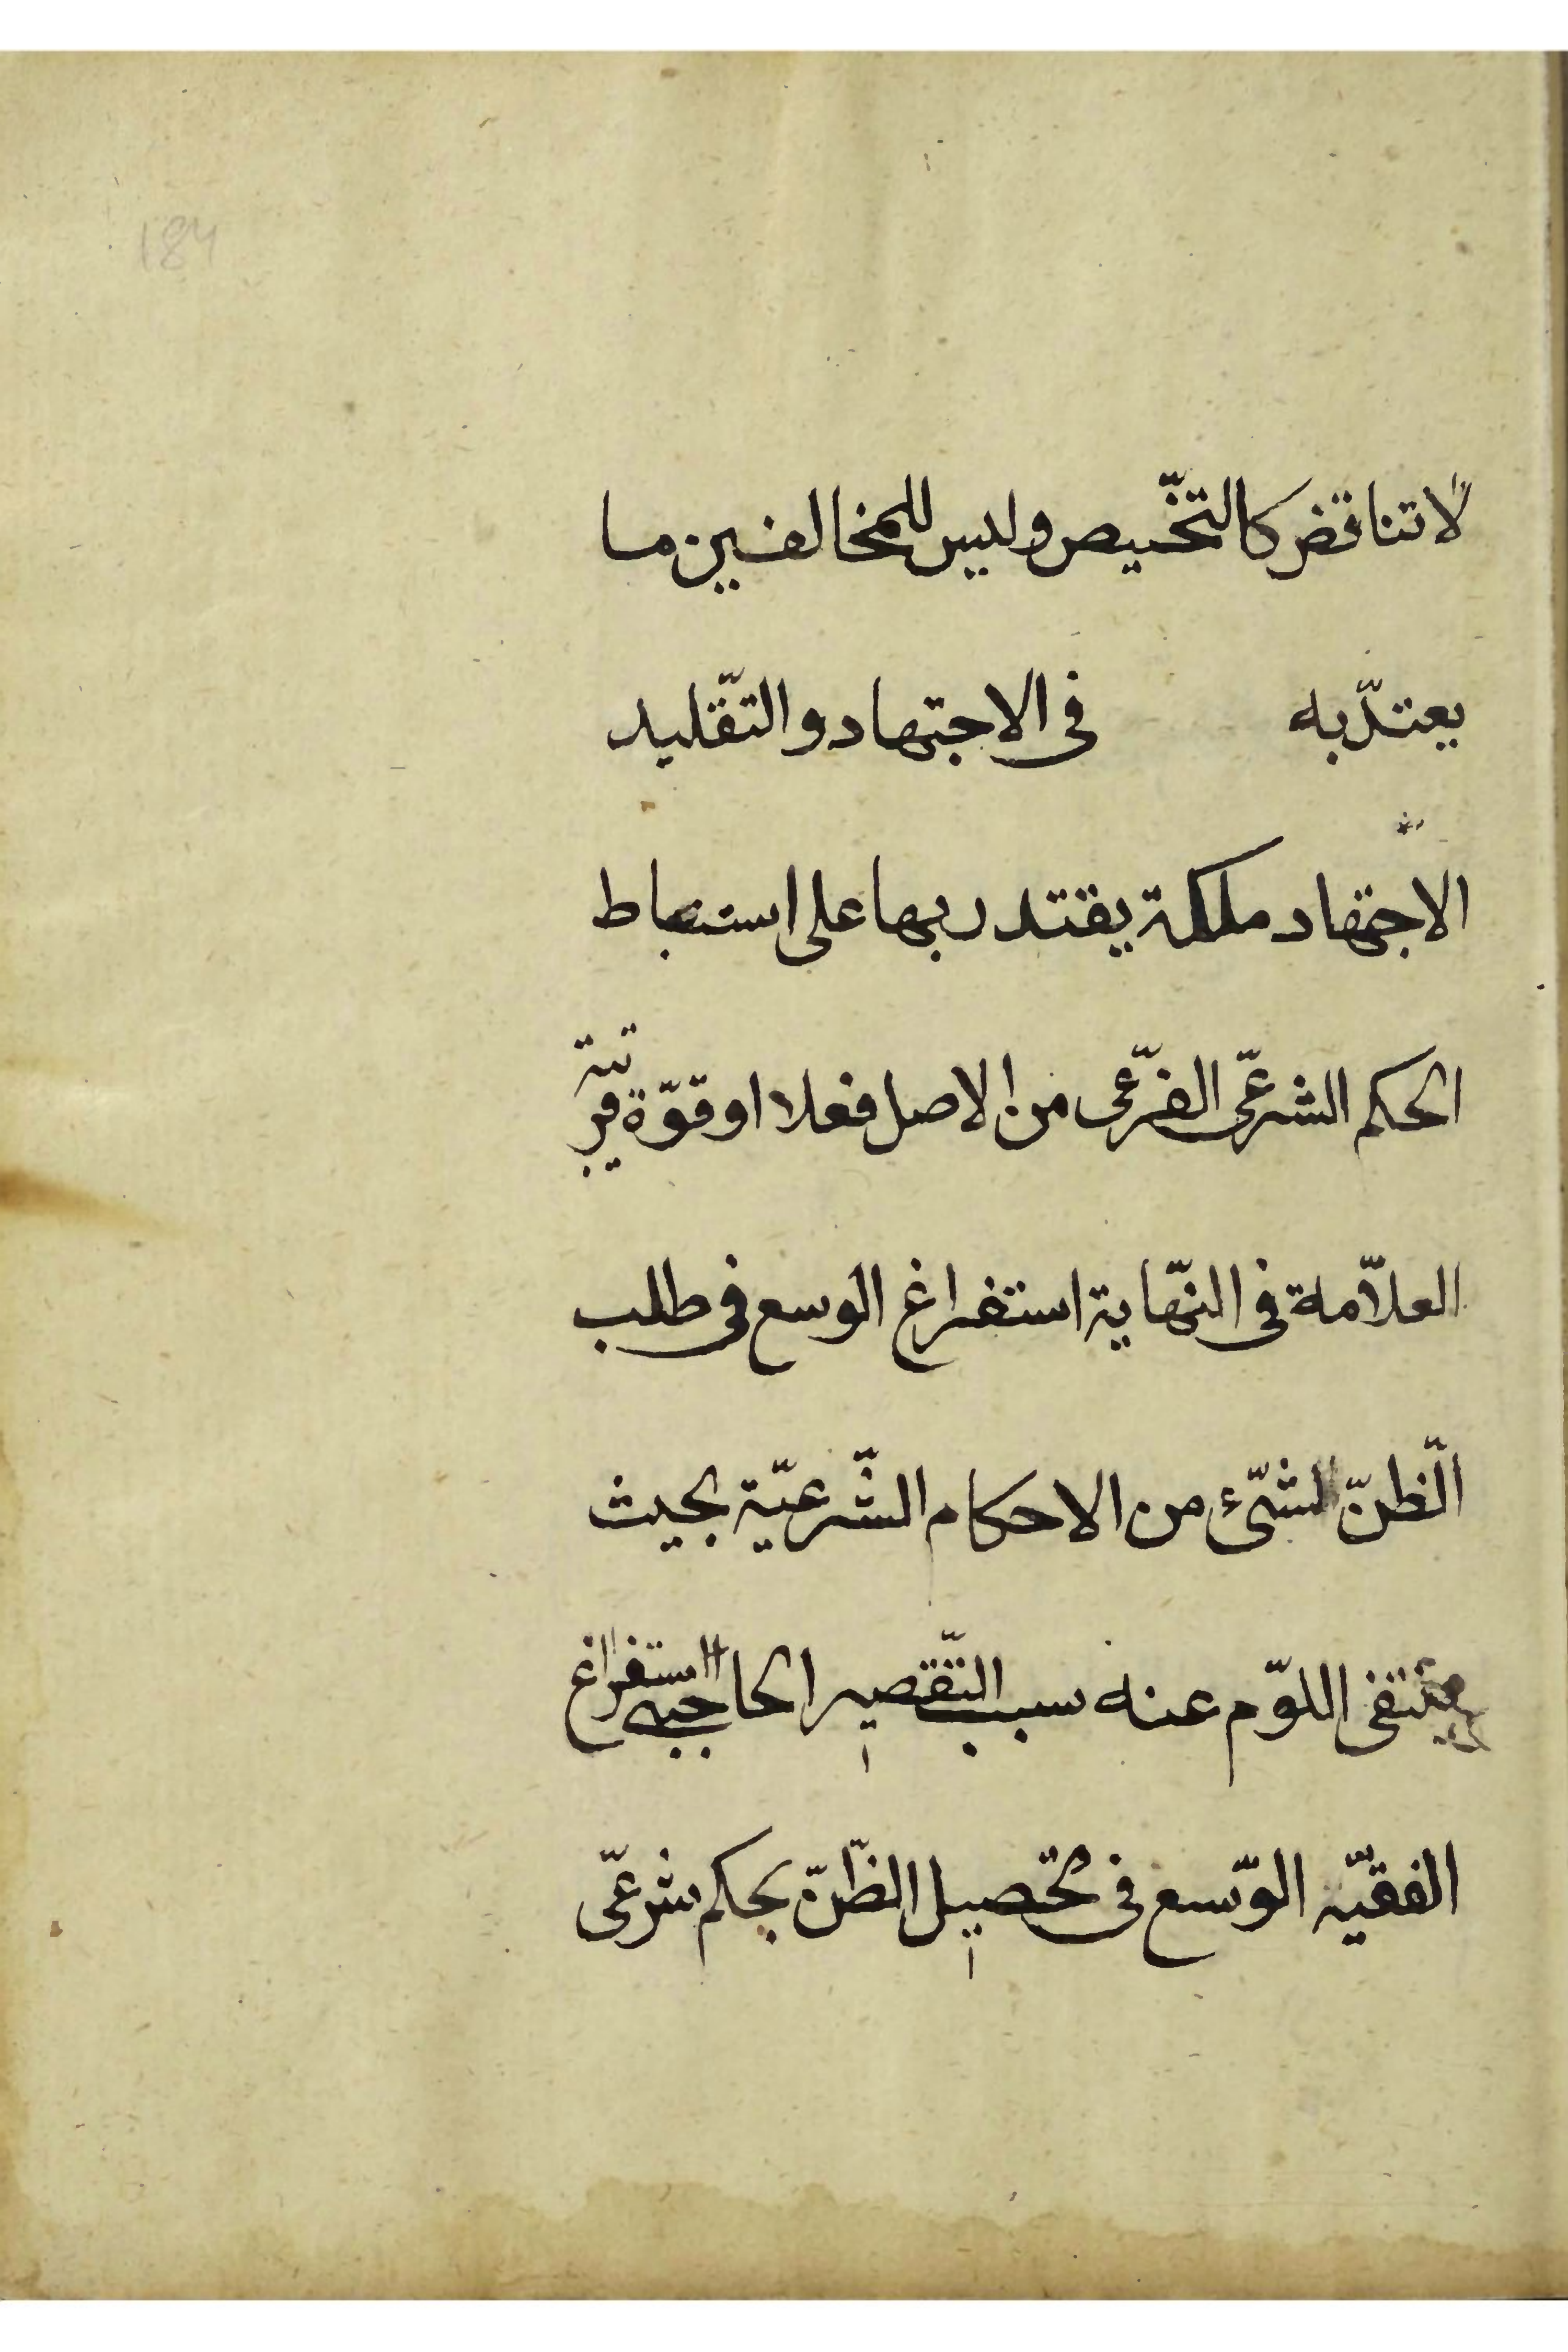 184
لا تناقض كالتخّيص وليس للمخالفين ما
يعتدّ به فى الاجتهاد والتّقليد
الاجتهاد ملكة يقتدر بها على استنباط
الحكم الشرعّى الفرّعى من الاصل فعلا او قوّة قريبة
العلاّمة فى النّهاية استفراغ الوسع فى طلب
الّظنّ لشّىء من الاحكام الشّرعيّة بحيث
ينتفى اللوّم عنه سبب التّقصير الحاجبى استفراغ
الفقيّه الوّسع فى تحصيل الظّنّ بحكم شرعّى